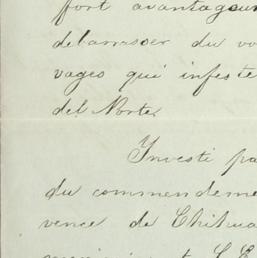 fort avantageu
débarrasser du vo
vages qui infeste
del Norte.
Investi pa
du commandeme
vence de Chihua